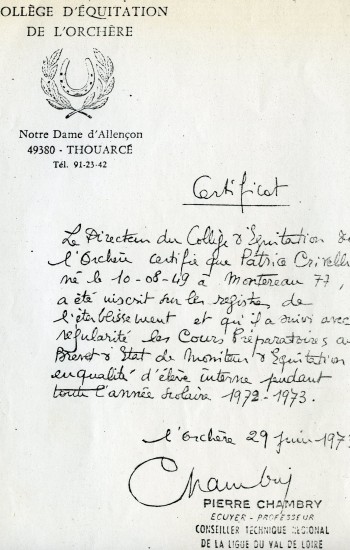 COLLÈGE D'ÉQUITATION
DE L'ORCHÈRE
Notre Dame d'Allençon
49380 - THOUARCÉ
Tél. 91-23-42
Certificat
Le Directeur du Collège d'Equitation de
l'Orchère certifie que Patrice Crivelli
né le 10-08-49 à Montereau 77,
a été inscrit sur les registres de
l'établissement et qu'il a suivi avec
régularité les Cours Préparatoires au
Brevet d'Etat de Moniteur d'Equitation
en qualité d'élève interne pendant
toute l'année scolaire 1972-1973.
l'Orchère 29 juin 1973
Chambry
PIERRE CHAMBRY
ECUYER - PROFESSEUR
CONSEILLER TECHNIQUE REGIONAL
DE LA LIGUE DU VAL DE LOIRE